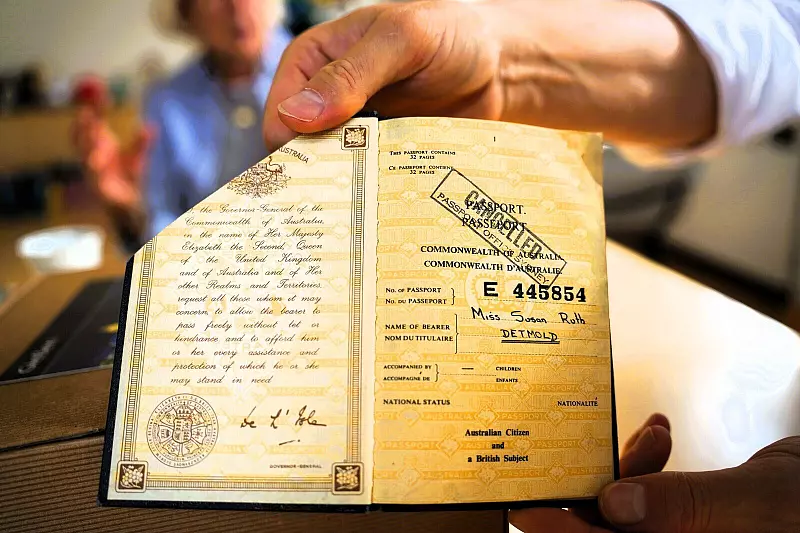 AUSTRALIA
the Governor-General of the
Commonwealth of Australia,
in the name of Her Majesty
Elizabeth the Second, Queen
of the United Kingdom
and of Australia and of Her
other Realms and Territories,
request all those whom it may
concern to allow the bearer to
pass freely without let or
hindrance and to afford him
or her every assistance and
protection of which he or she
may stand in need
De L'Isle
GOVERNOR-GENERAL
1
THIS PASSPORT CONTAINS
32 PAGES
CE PASSEPORT CONTIENT
32 PAGES
PASSPORT.
PASSEPORT
CANCELLED
PASSPORT OFFICE
COMMONWEALTH OF AUSTRALIA
COMMONWEALTH D'AUSTRALIE
NO. OF PASSPORT
NO. DU PASSEPORT
E 445854
Miss Susan Ruth
DETMOLD
NAME OF BEARER
NOM DU TITULAIRE
ACCOMPANIED BY — CHILDREN
ACCOMPAGNE DE ENFANTS
NATIONAL STATUS NATIONALITÉ
Australian Citizen
and
a British Subject